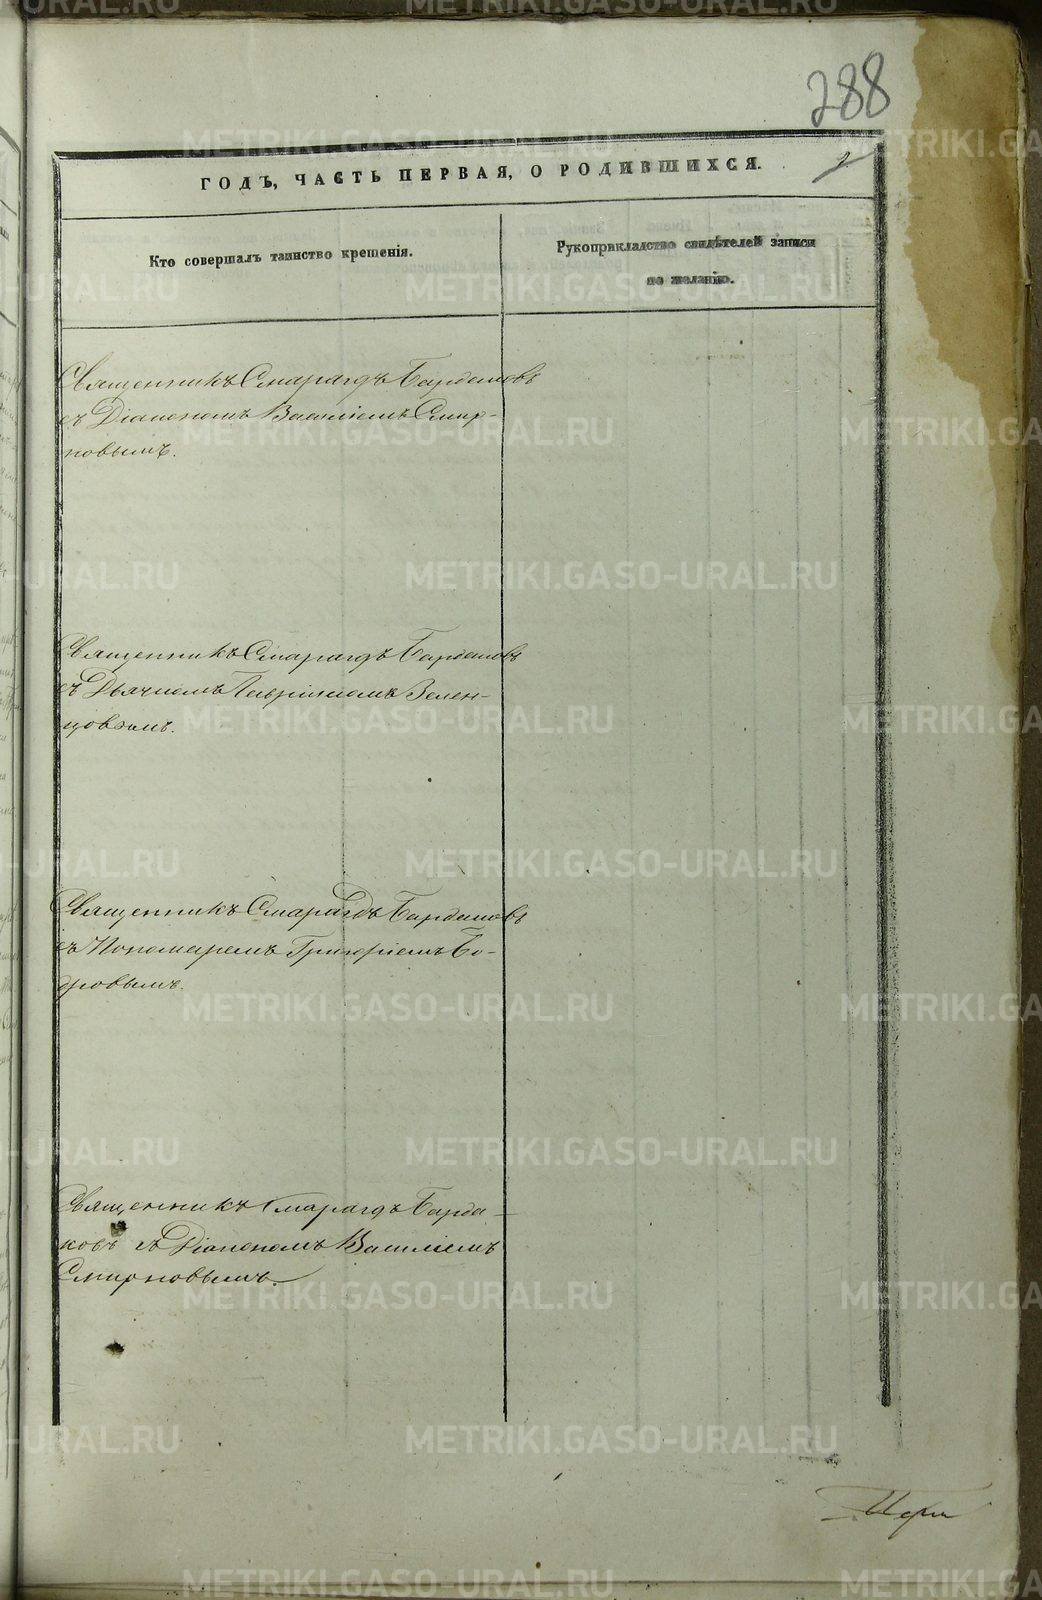 288
ГОДЪ, ЧАСТЬ ПЕРВАЯ, О РОДИВШИХСЯ.
Кто совершалъ таинство крещенія.
Рукоприкладство свидѣтелей записи
по желанію.
Священникъ Смарагдъ Бардаковъ
съ Діакономъ Василіемъ Смир-
новымъ.
Священникъ Смарагдъ Бардаковъ
съ Дьячкомъ Гавріиломъ Зелен-
цовымъ.
Священникъ Смарагдъ Бардаковъ
съ Пономаремъ Григоріемъ Бо-
дровымъ.
Священникъ Смарагдъ Барда-
ковъ съ Діакономъ Василіемъ
Смирновымъ.
METRIKI.GASO-URAL.RU